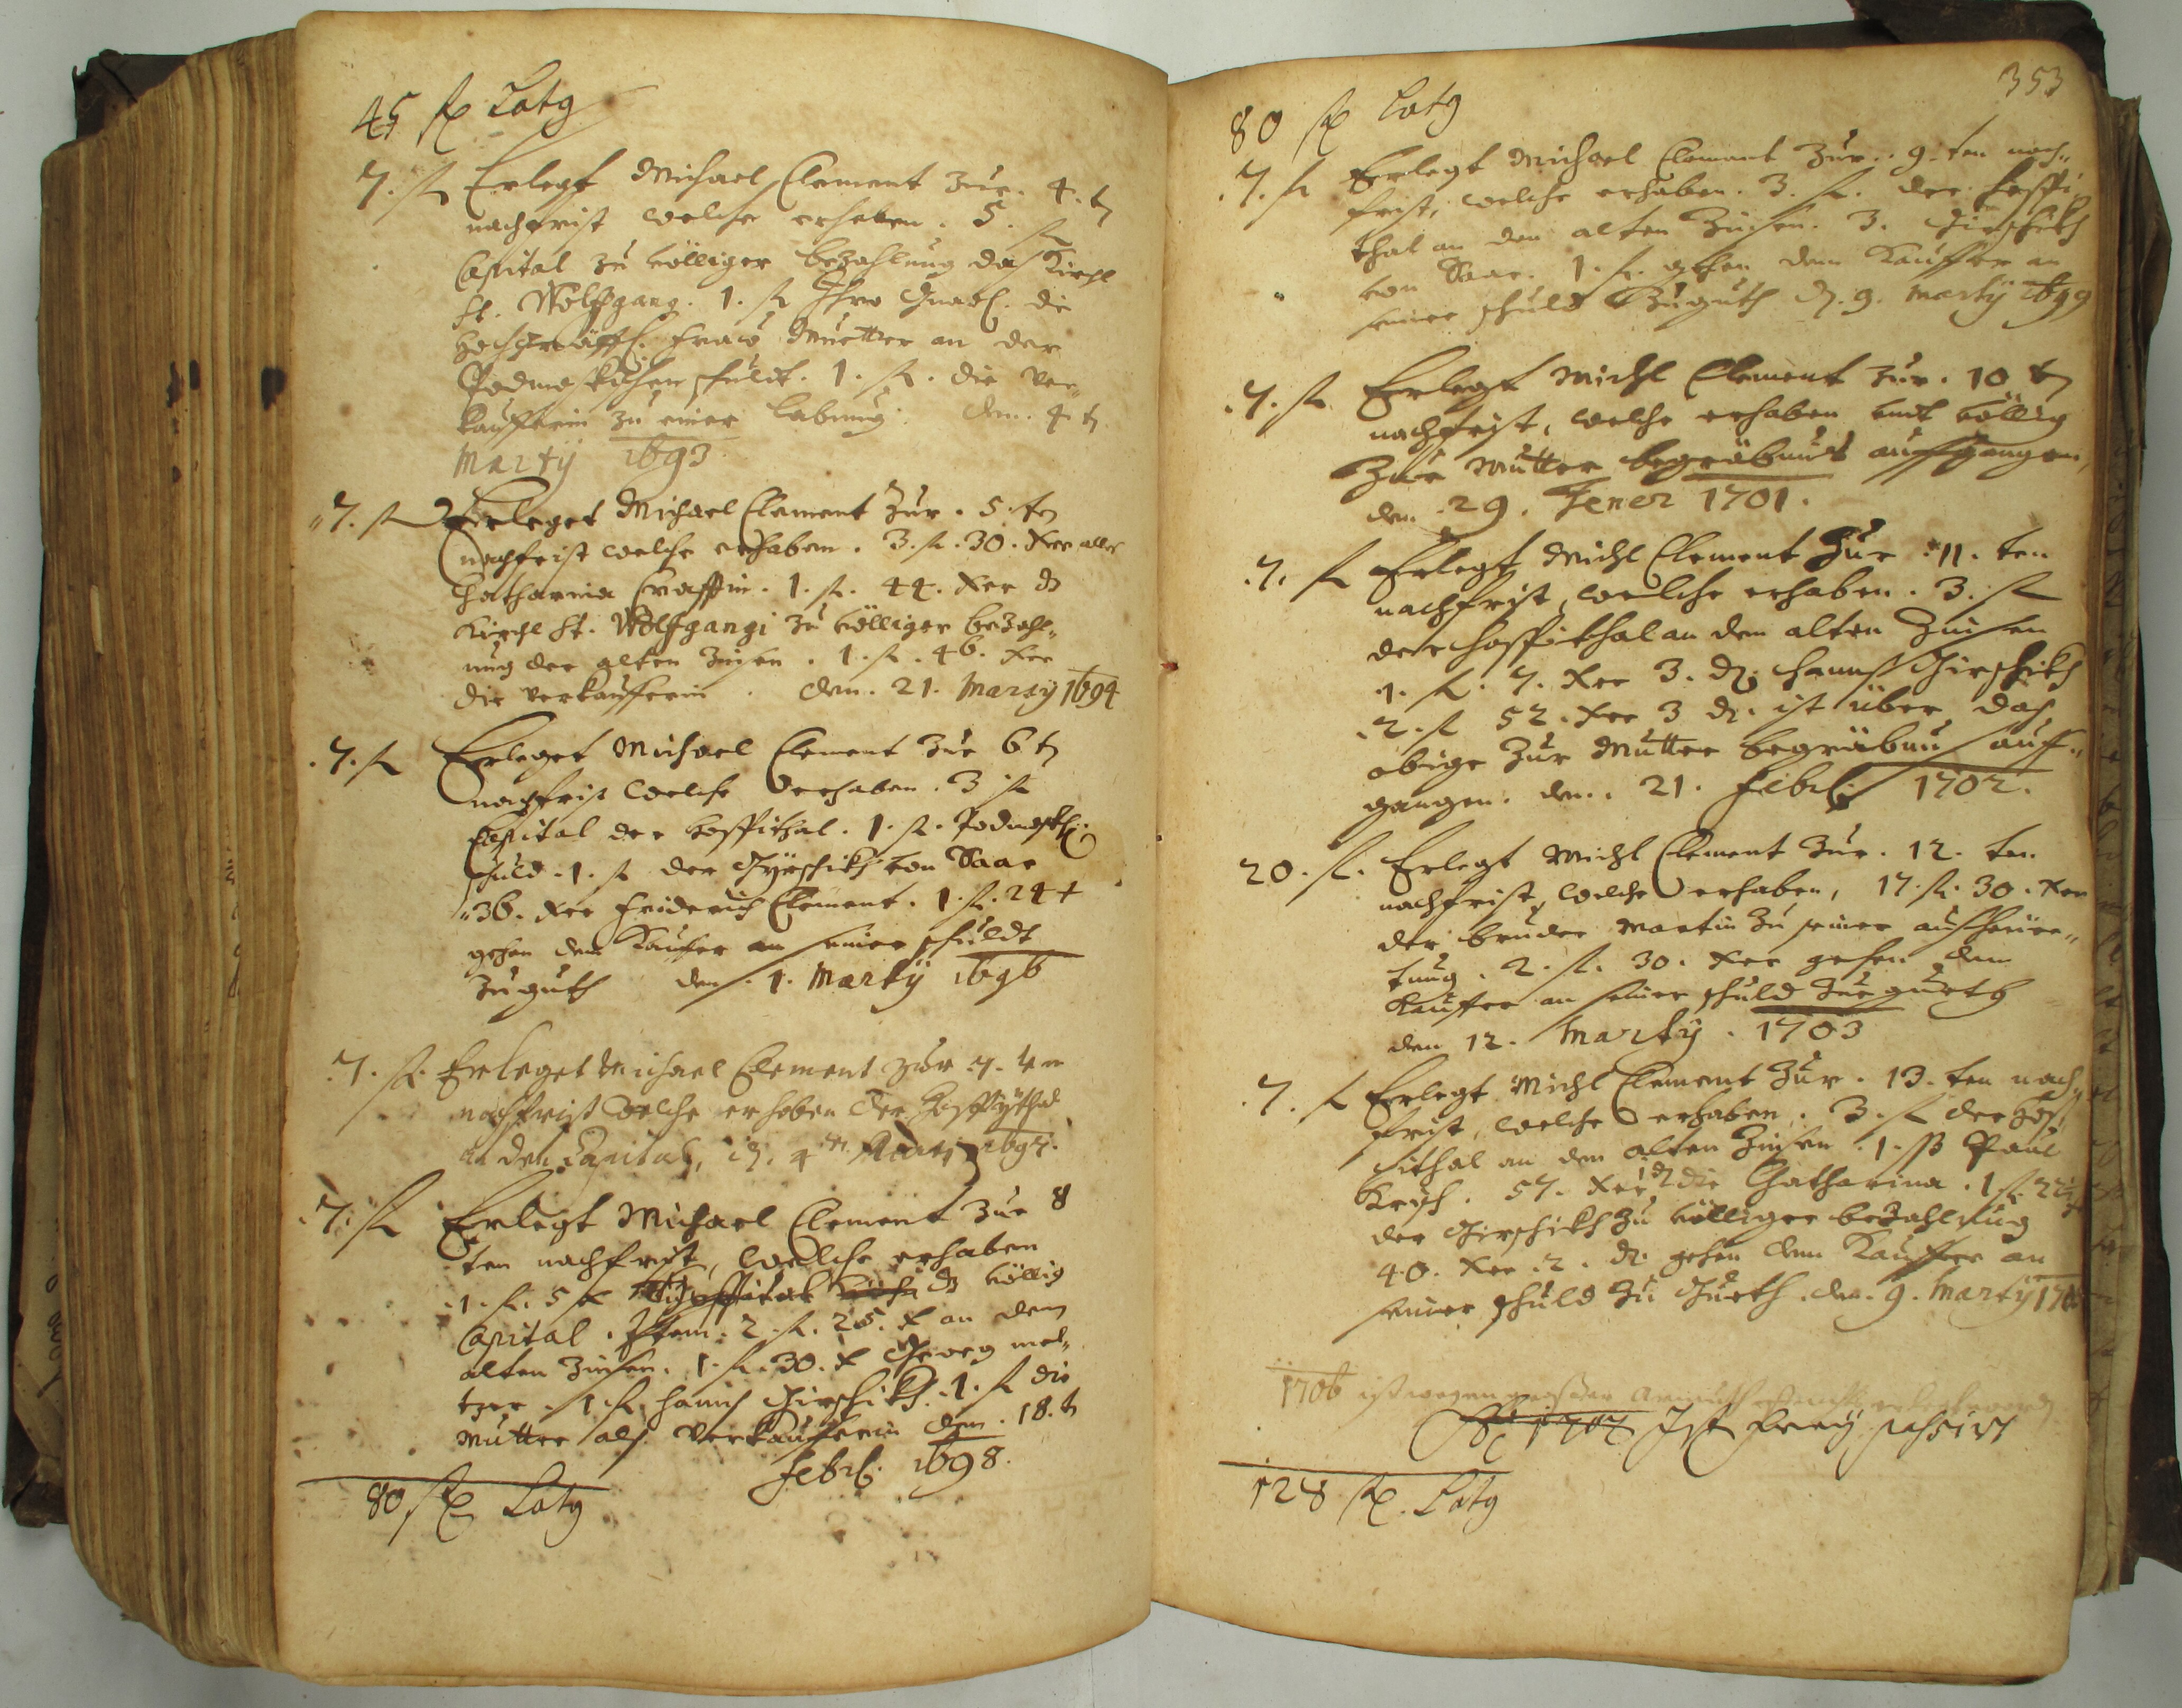 45 fl Latg
7. fl Erlegt Michael Clement zur. 4. t
nachfrist welche erhaben. 5. fl
Capital zu völliger bezahlung das Kirchl
St. Wolffgang. 1. fl Ihro Gnadl. die
hochgräffl. Fraw Muetter an der
schuldt. 1. fl. die Ver„
kaufferin zu einer labnung. den. 4 t
Martÿ 1693
7. fl Erleget Michael Clement zur. 5. ten
nachfrist welche erhaben. 3. fl. 30. xer alls
Catharina Craffin. 1. fl. 44. xer d
Kirchl St. Wolffgangi zu völliger bezahl„
ung der alten Zinsen. 1. fl. 46. xer
die verkaufferin. den. 21. Martÿ 1694
7. fl Erleget Michael Clement zur 6 t
nachfrist welche erhaben. 3 fl
Capital der hospithal. 1. fl.
schuld. 1. fl der Gÿrschikh von Saar
36. xer Friderich Clement. 1. fl. 24 x
gehen dem Kauffer an seiner schuldt
zu guth den. 1. Martÿ 1696
7. fl. Erleget Michael Clement zur 7. ten
nachfrist welche erhoben der Hospÿthal
an den Capital, d. 4ten Martj 1697.
7. fl Erlegt Michael Clement zur 8
ten nachfrist, welche erhaben
1. fl. 5 x d völlig
Capital. Item. 2. fl. 25. x an dem
alten Zinsen. 1. fl. 30. x Georg mel„
tzer. 1. fl. Hanns Girschikh. 1. fl die
Mutter als Verkaufferin den. 18. t
Febrl. 1698.
80 fl Latg
353
80 fl Latg
7. fl Erlegt Michael Clement zur. 9. ten nach„
frist, welche erhaben. 3. fl. der hospi„
thal an den alten Zinsen. 3. Girschikh
von Saar. 1. fl. gehen dem Kauffer an
seiner schuld zu guth d. 9. Martÿ 1699
7. fl. Erlegt Michl Clement zur. 10 t
nachfrist, welche erhaben undt völlig
zur Mutter begräbnus auffgangen,
den. 29. Jener 1701.
7. fl Erlegt Michl Clement zur. 11. ten
nachfrist, welche erhaben. 3. fl
der hospithal an dem alten Zinsen
1. fl. 7. xer 3. d. Hanns Girschikh
2. fl 52. xer 3 d. ist über das
obige zur Mutter begräbnus auff„
gangen. den. 21. Febrl. 1702.
20. fl. Erlegt Michl Clement zur. 12. ten
nachfrist, welche erhaben, 17. fl. 30. xer
der bruder Martin zu seiner aus heüra„
tung. 2. fl. 30. xer gehen dem
Kauffer an seiner schuld zue gueth
den 12. Martÿ. 1703
7. fl Erlegt Michl Clement zur. 13. ten nach„
frist, welche erhaben. 3. fl der hos„
pithal an den alten Zinsen. 1. ß Paul
57. xer 1 d die Chatharina. 1 fl. 22
der Girschikh zu völliger bezahlung
40. xer. 2. d. gehen dem Kauffer an
seiner schuld zu Gueth. den. 9. Martÿ
1706 ist wegen grosser armuth nichts erlegt worden
1707 Ist
128 fl. Latg